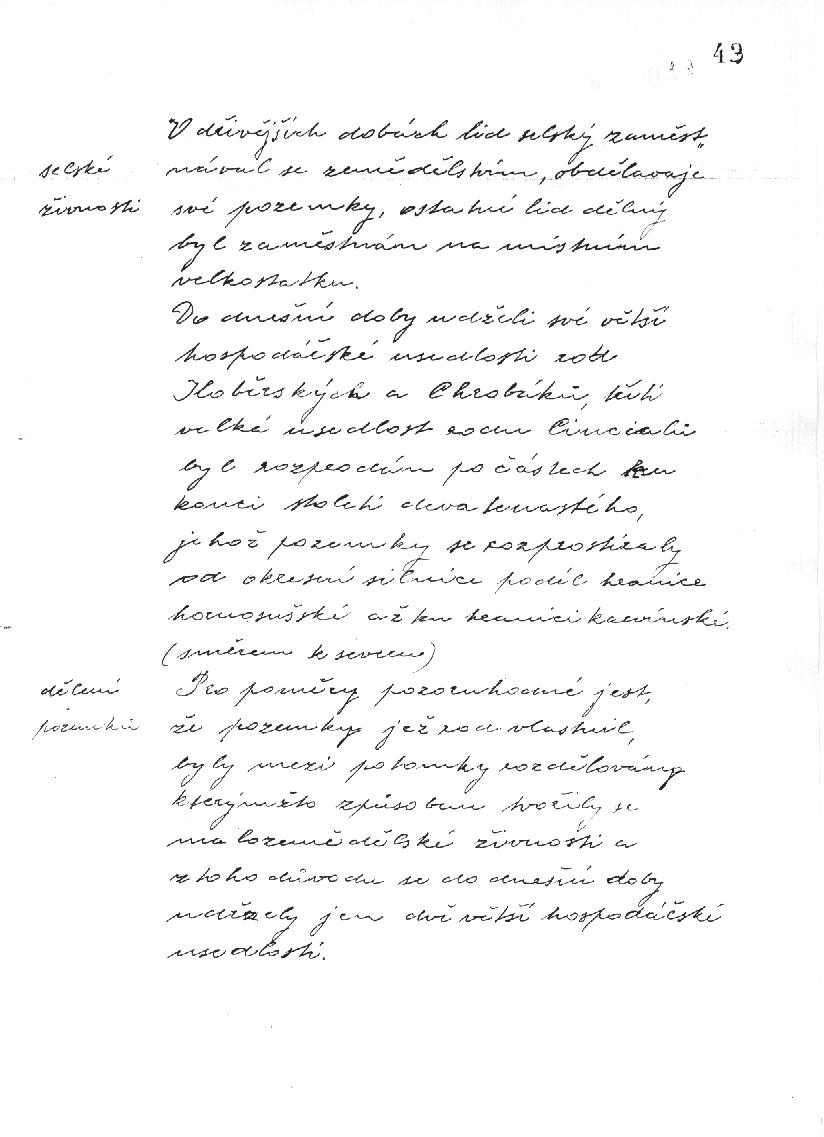 43
V dřívějších dobách lid selský zaměst„
selské
nával se zemědělstvím, obdělávaje
živnosti
své pozemky, ostatní lid dělný
byl zaměstnán na místním
velkostatku.
Do dnešní doby udrželi své větší
hospodářské usedlosti rod
a Chrobáků, třetí
velká usedlost rodu Cinciali
byl rozprodán po částech ku
konci století devatenastého,
jehož pozemky se rozprostíraly
od okresní silnice podél hranice
hornosušské až ku hranici karvinské.
(směrem k severu)
dělení
Pro poměry pozoruhodné jest,
pozemků
že pozemky jež rod vlastnil,
byly mezi potomky rozdělovány
kterýmžto způsobem tvořily se
malozemědělské živnosti a
z toho důvodu se do dnešní doby
udržely jen dvě větší hospodářské
usedlosti.